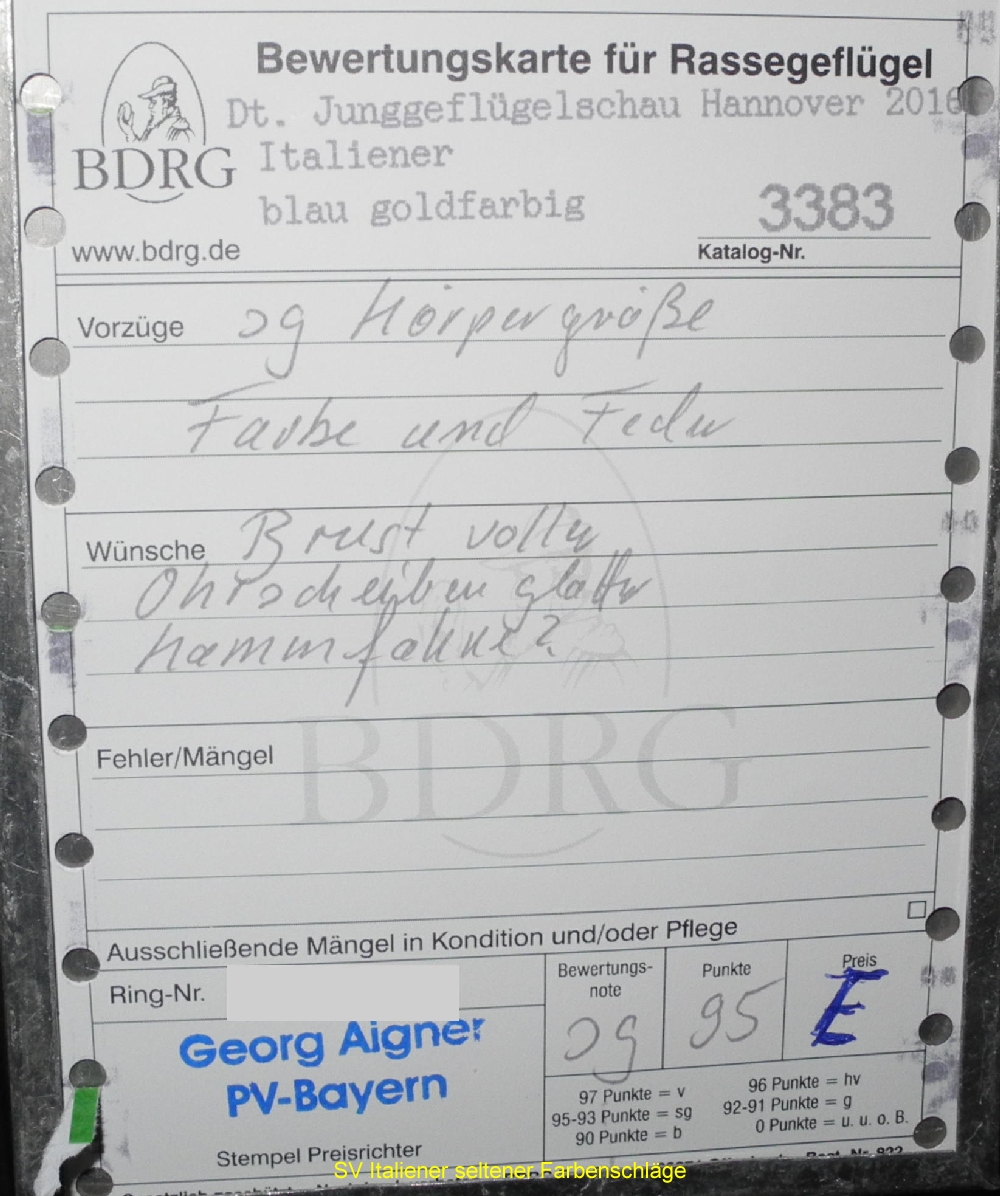 Bewertungskarte für Rassegeflügel
Dt. Junggeflügelschau Hannover 2016
BDRG
Italiener
blau goldfarbig
3383
www.bdrg.de
Katalog-Nr.
Vorzüge sg Körpergröße
Farbe und Feder
Wünsche Brust voller
Ohrscheiben glatter
Kammfahne?
BDRG
Fehler/Mängel
Ausschließende Mängel in Kondition und/oder Pflege
Ring-Nr.
Bewertungs-
note
Punkte
Preis
sg
95
E
Georg Aigner
PV-Bayern
97 Punkte = v
96 Punkte = hv
95-93 Punkte = sg
92-91 Punkte = g
90 Punkte = b
0 Punkte = u. u. o. B.
Stempel Preisrichter
SV Italiener seltener Farbenschläge